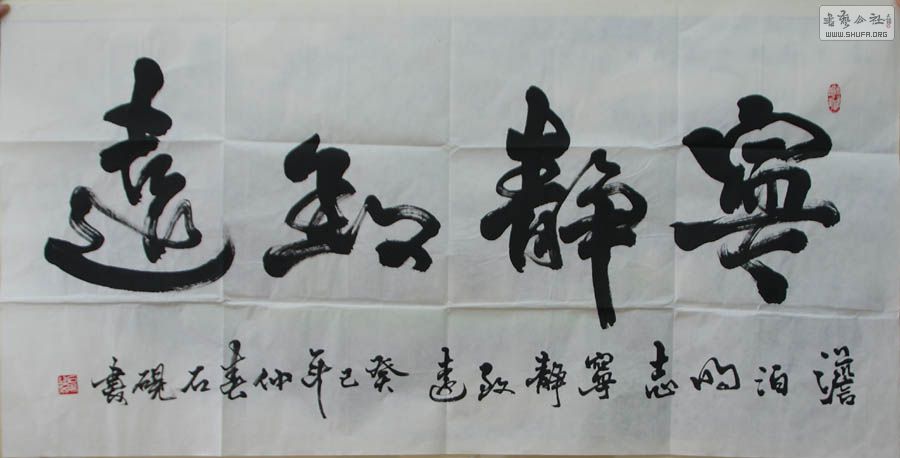 寧靜致遠
澹泊明志寧靜致遠癸巳年仲春石硯書
書藝公社
WWW.SHUFA.ORG